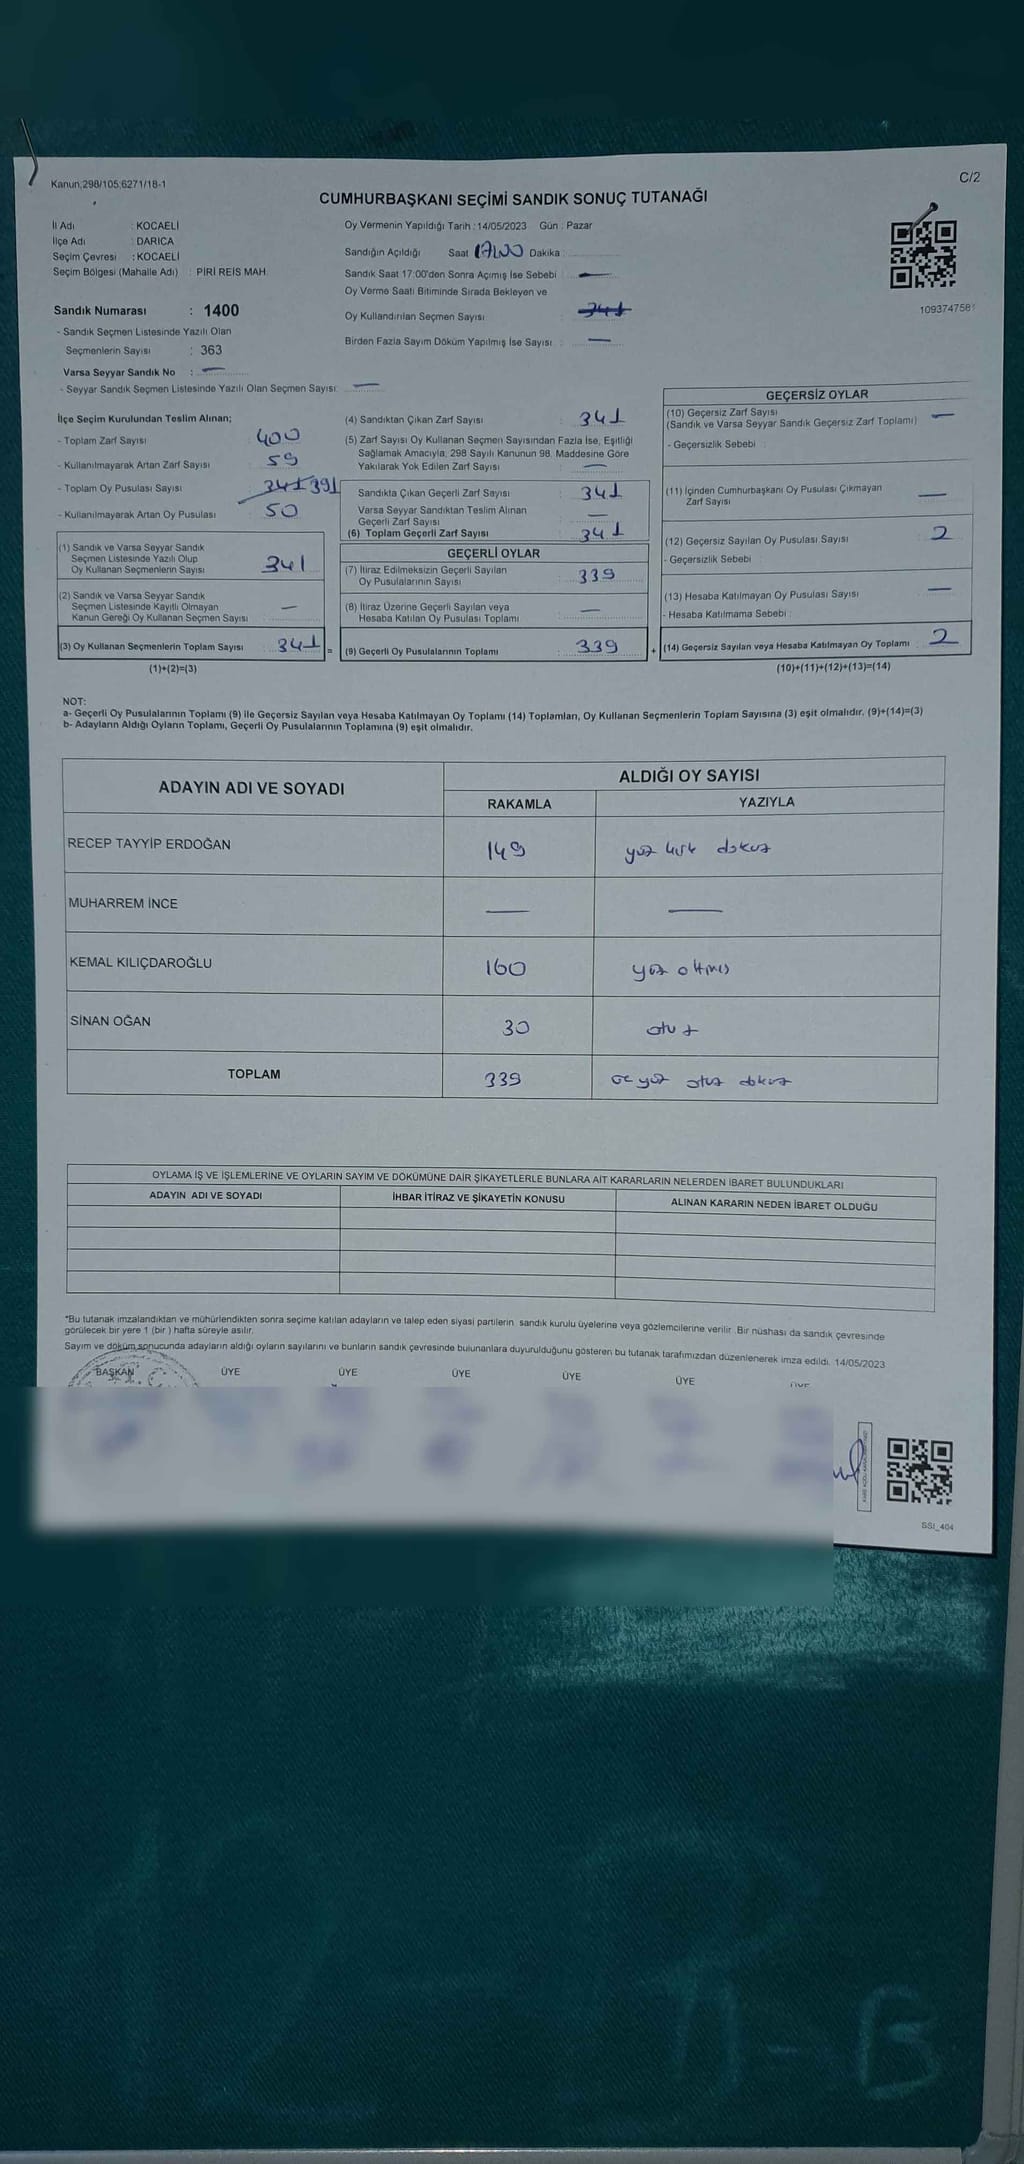 Kanun;298/105;6271/18-1
C/2
CUMHURBAŞKANI SEÇİMİ SANDIK SONUÇ TUTANAĞI
İl Adı : KOCAELİ
İlçe Adı : DARICA
Seçim Çevresi : KOCAELİ
Seçim Bölgesi (Mahalle Adı) : PİRİ REİS MAH.
Sandık Numarası : 1400
- Sandık Seçmen Listesinde Yazılı Olan
Seçmenlerin Sayısı : 363
Varsa Seyyar Sandık No : —
- Seyyar Sandık Seçmen Listesinde Yazılı Olan Seçmen Sayısı: —
Oy Vermenin Yapıldığı Tarih : 14/05/2023 Gün : Pazar
Sandığın Açıldığı Saat 17.00 Dakika :
Sandık Saat 17:00'den Sonra Açımış İse Sebebi : —
Oy Verme Saati Bitiminde Sırada Bekleyen ve
Oy Kullandırılan Seçmen Sayısı : 341
Birden Fazla Sayım Döküm Yapılmış İse Sayısı : —
109374758
İlçe Seçim Kurulundan Teslim Alınan;
- Toplam Zarf Sayısı : 400
- Kullanılmayarak Artan Zarf Sayısı : 59
- Toplam Oy Pusulası Sayısı : 341 391
- Kullanılmayarak Artan Oy Pusulası : 50
(1) Sandık ve Varsa Seyyar Sandık
Seçmen Listesinde Yazılı Olup
Oy Kullanan Seçmenlerin Sayısı 341
(2) Sandık ve Varsa Seyyar Sandık
Seçmen Listesinde Kayıtlı Olmayan
Kanun Gereği Oy Kullanan Seçmen Sayısı —
(3) Oy Kullanan Seçmenlerin Toplam Sayısı 341 =
(1)+(2)=(3)
(4) Sandıktan Çıkan Zarf Sayısı : 341
(5) Zarf Sayısı Oy Kullanan Seçmen Sayısından Fazla İse, Eşitliği
Sağlamak Amacıyla; 298 Sayılı Kanunun 98. Maddesine Göre
Yakılarak Yok Edilen Zarf Sayısı : —
Sandıkta Çıkan Geçerli Zarf Sayısı : 341
Varsa Seyyar Sandıktan Teslim Alınan
Geçerli Zarf Sayısı : —
(6) Toplam Geçerli Zarf Sayısı : 341
GEÇERLİ OYLAR
(7) İtiraz Edilmeksizin Geçerli Sayılan
Oy Pusulalarının Sayısı : 339
(8) İtiraz Üzerine Geçerli Sayılan veya
Hesaba Katılan Oy Pusulası Toplamı : —
(9) Geçerli Oy Pusulalarının Toplamı : 339 +
GEÇERSİZ OYLAR
(10) Geçersiz Zarf Sayısı : —
(Sandık ve Varsa Seyyar Sandık Geçersiz Zarf Toplamı)
- Geçersizlik Sebebi :
(11) İçinden Cumhurbaşkanı Oy Pusulası Çıkmayan
Zarf Sayısı —
(12) Geçersiz Sayılan Oy Pusulası Sayısı : 2
- Geçersizlik Sebebi :
(13) Hesaba Katılmayan Oy Pusulası Sayısı : —
- Hesaba Katılmama Sebebi :
(14) Geçersiz Sayılan veya Hesaba Katılmayan Oy Toplamı : 2
(10)+(11)+(12)+(13)=(14)
NOT:
a- Geçerli Oy Pusulalarının Toplamı (9) ile Geçersiz Sayılan veya Hesaba Katılmayan Oy Toplamı (14) Toplamları, Oy Kullanan Seçmenlerin Toplam Sayısına (3) eşit olmalıdır. (9)+(14)=(3)
b- Adayların Aldığı Oyların Toplamı, Geçerli Oy Pusulalarının Toplamına (9) eşit olmalıdır.
ADAYIN ADI VE SOYADI
ALDIĞI OY SAYISI
RAKAMLA YAZIYLA
RECEP TAYYİP ERDOĞAN 149 yüz kırk dokuz
MUHARREM İNCE — —
KEMAL KILIÇDAROĞLU 160 yüz altmış
SİNAN OĞAN 30 otuz
TOPLAM 339 üç yüz otuz dokuz
OYLAMA İŞ VE İŞLEMLERİNE VE OYLARIN SAYIM VE DÖKÜMÜNE DAİR ŞİKAYETLERLE BUNLARA AİT KARARLARIN NELERDEN İBARET BULUNDUKLARI
ADAYIN ADI VE SOYADI İHBAR İTİRAZ VE ŞİKAYETİN KONUSU ALINAN KARARIN NEDEN İBARET OLDUĞU
*Bu tutanak imzalandıktan ve mühürlendikten sonra seçime katılan adayların ve talep eden siyasi partilerin sandık kurulu üyelerine veya gözlemcilerine verilir. Bir nüshası da sandık çevresinde
görülecek bir yere 1 (bir ) hafta süreyle asılır.
Sayım ve döküm sonucunda adayların aldığı oyların sayılarını ve bunların sandık çevresinde bulunanlara duyurulduğunu gösteren bu tutanak tarafımızdan düzenlenerek imza edildi. 14/05/2023
BAŞKAN ÜYE ÜYE ÜYE ÜYE ÜYE ÜYE
SSI_404
-B